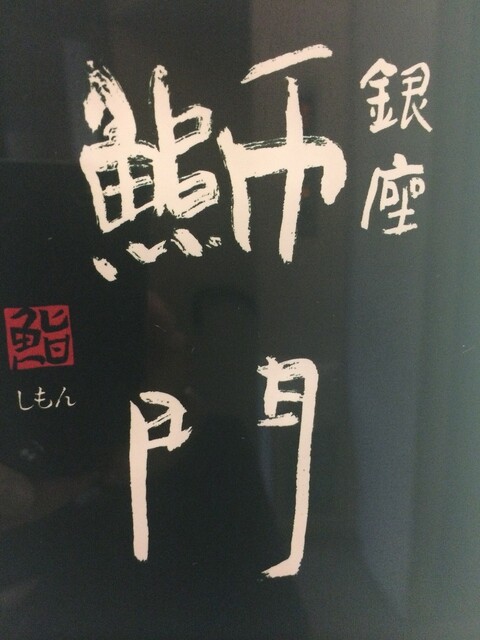 銀座
鰤門
鮨
しもん